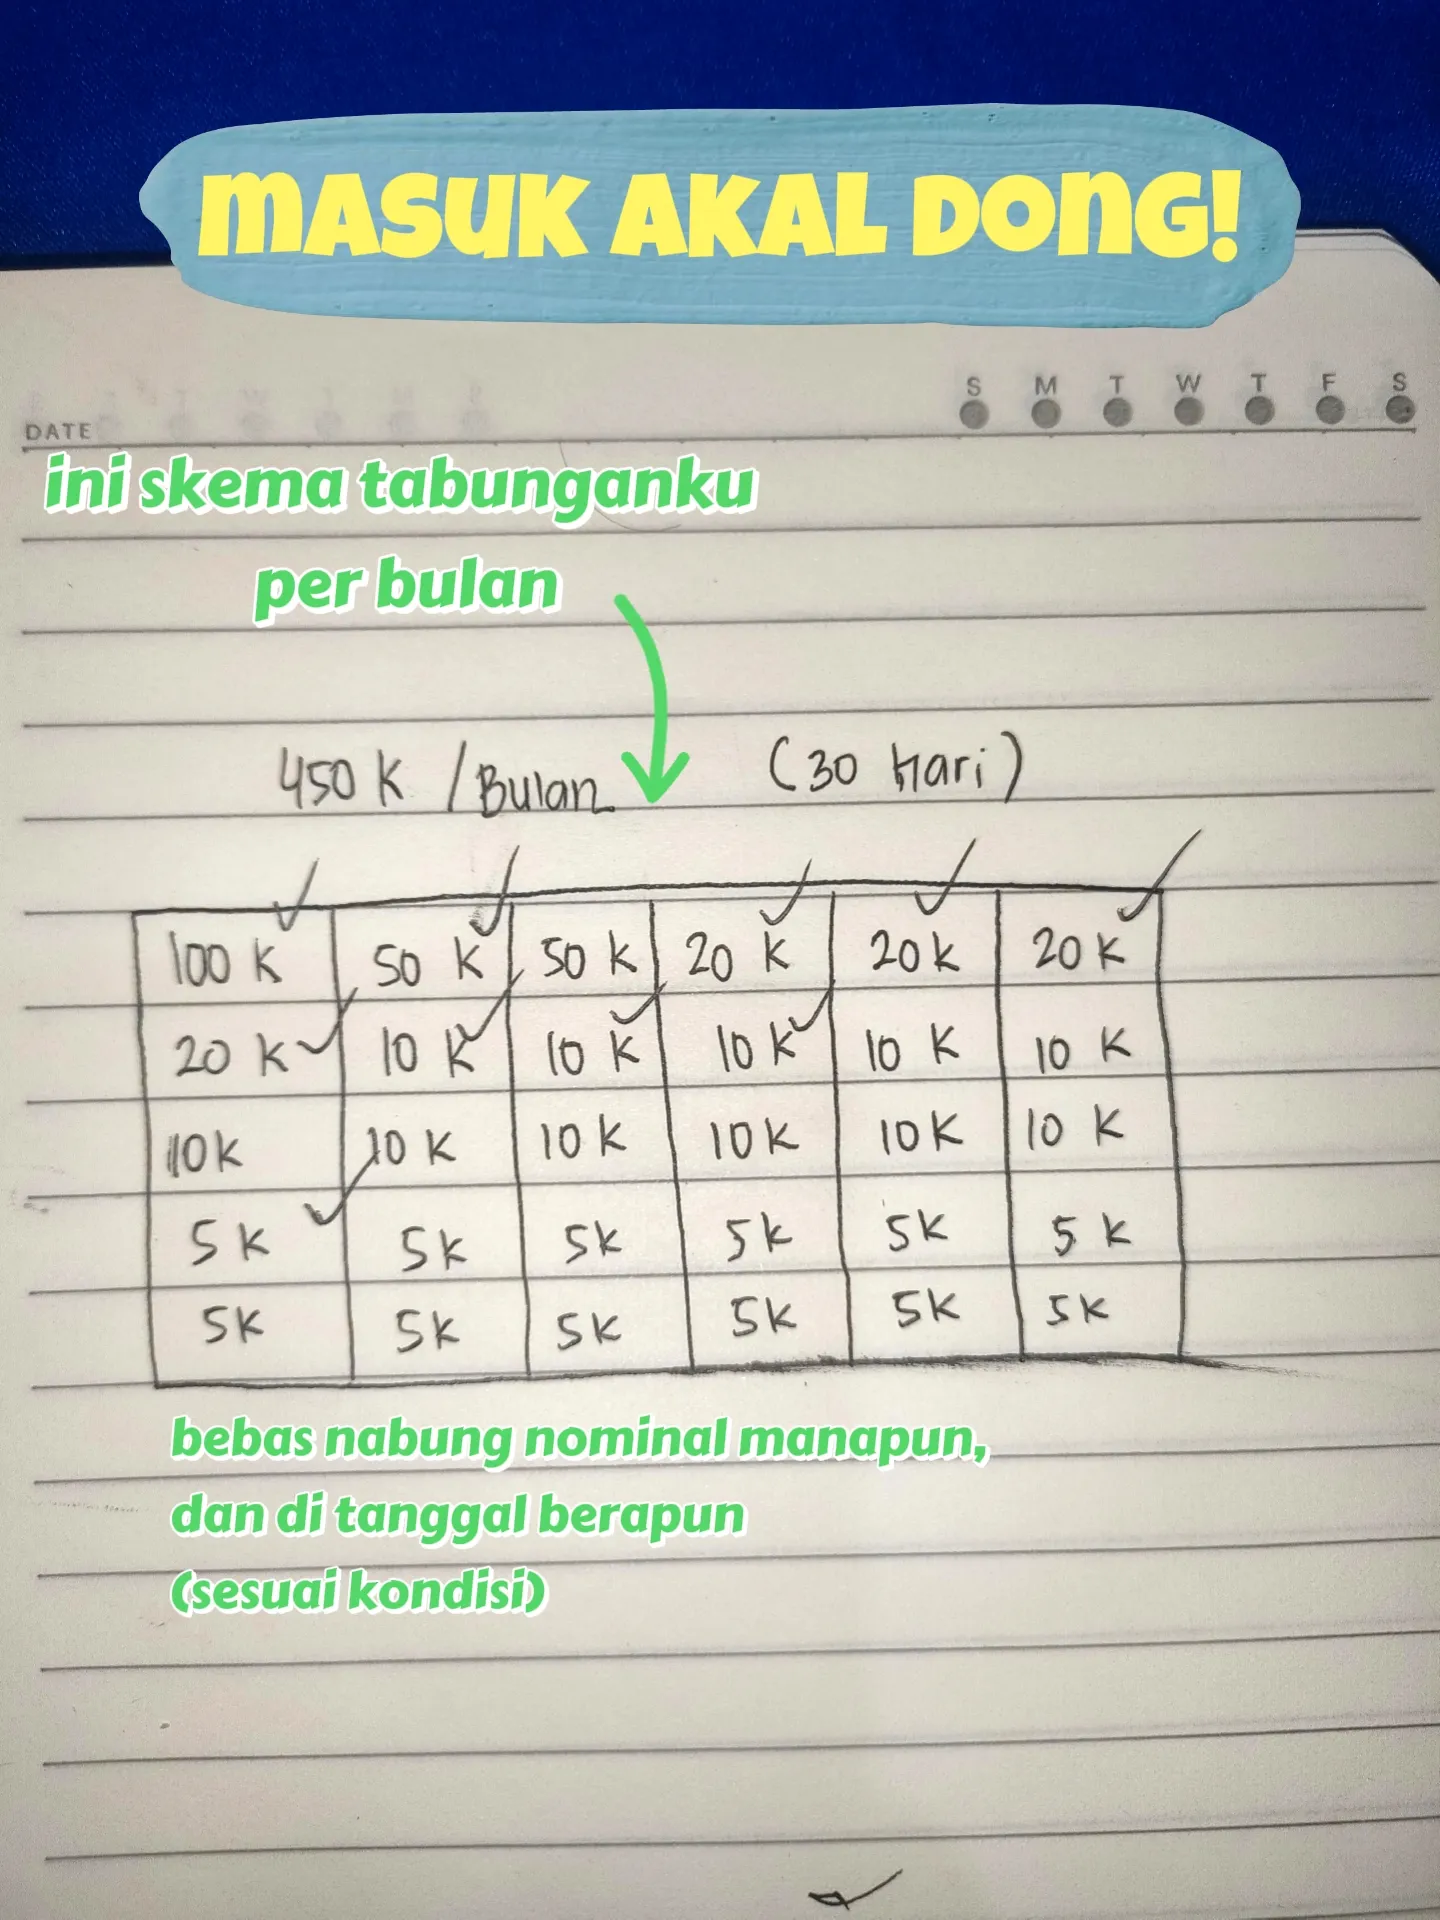 MASUK AKAL DONG!
S M T W T F S
DATE
ini skema tabunganku
per bulan
450 K / Bulan (30 Hari)
100 K 50 K 50 K 20 K 20 K 20 K
20 K 10 K 10 K 10 K 10 K 10 K
10 K 10 K 10 K 10 K 10 K 10 K
5 K 5 K 5 K 5 K 5 K 5 K
5 K 5 K 5 K 5 K 5 K 5 K
bebas nabung nominal manapun,
dan di tanggal berapun
(sesuai kondisi)